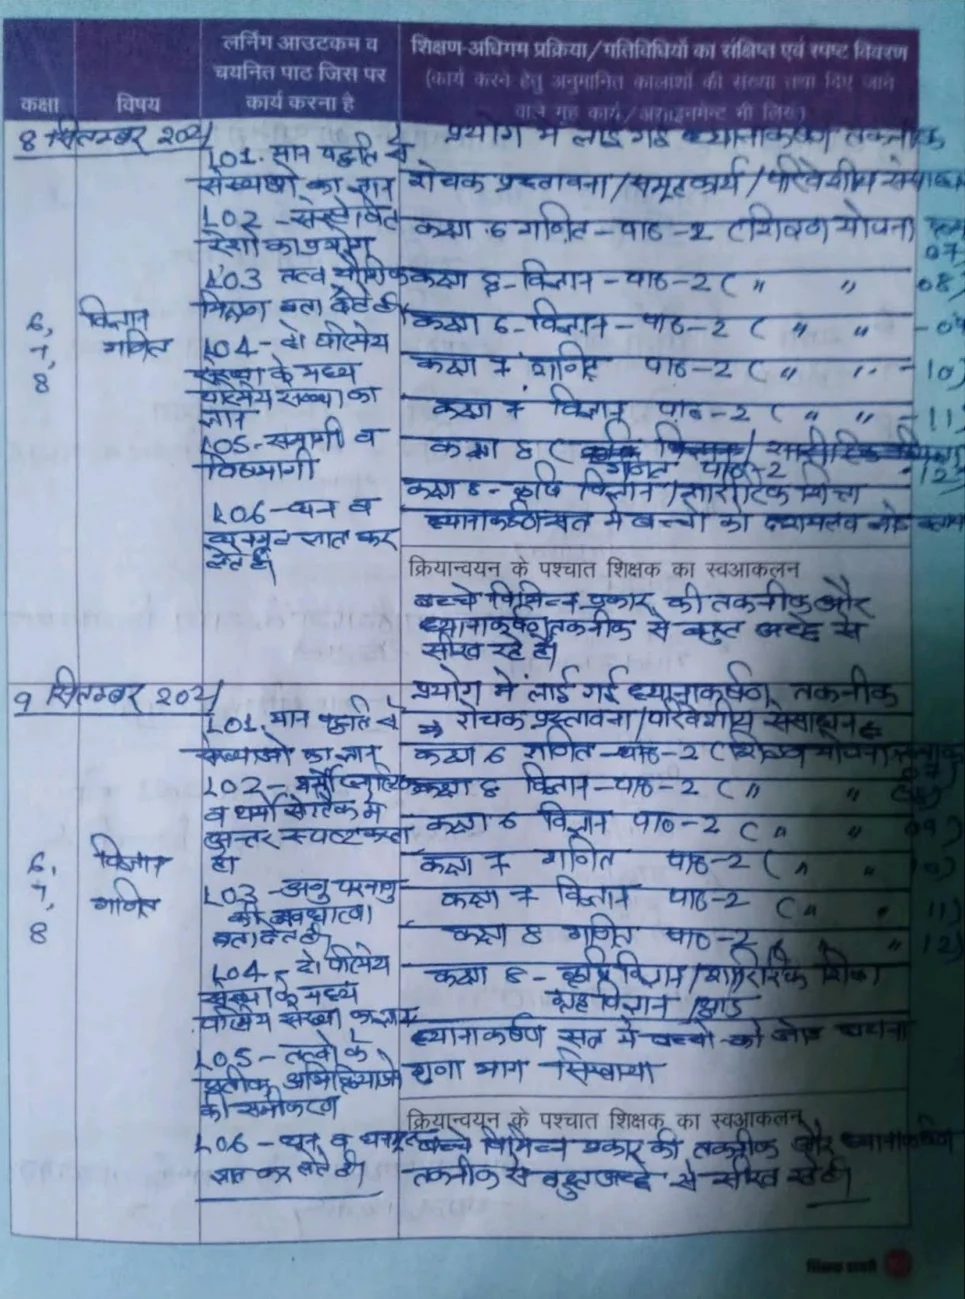 कक्षा
विषय
लर्निंग आउटकम व
चयनित पाठ जिस पर
कार्य करना है
शिक्षण-अधिगम प्रक्रिया/गतिविधियों का संक्षिप्त एवं स्पष्ट विवरण
(कार्य करने हेतु अनुमानित कालांशों की संख्या तथा दिए जाने
वाले गृह कार्य/असाइनमेन्ट भी लिखें)
8 सितम्बर 2021
6,
7,
8
विज्ञान
गणित
LO1. मान पद्धति से
संख्याओं का ज्ञान
LO2 - संश्लेषित
रेशों का प्रयोग
LO3 तत्व यौगिक
मिश्रण बता देते हैं
LO4 - दो परिमेय
संख्या के मध्य
परिमेय संख्या का
ज्ञान
LO5 - समांगी व
विषमांगी
LO6 - घन व
घनमूल ज्ञात कर
लेते हैं।
प्रयोग में लाई गई ध्यानाकर्षण तकनीक
रोचक प्रस्तावना/समूहकार्य/परिवेशीय संसाधन
कक्षा 6 गणित - पाठ - 2 (शिक्षण योजना
07)
कक्षा 8 - विज्ञान - पाठ - 2 ( " " 08)
कक्षा 6 - विज्ञान - पाठ - 2 ( " " - 09
कक्षा 7 गणित पाठ - 2 ( " " - 10)
कक्षा 7 विज्ञान पाठ - 2 ( " " - 11)
कक्षा 8 (
गणित पाठ - 2 - 12)
कक्षा 8 - कृषि विज्ञान/शारीरिक शिक्षा
ध्यानाकर्षण सत्र में बच्चों को
क्रियान्वयन के पश्चात शिक्षक का स्वआकलन
बच्चे विभिन्न प्रकार की तकनीक और
ध्यानाकर्षण तकनीक से बहुत अच्छे से
सीख रहे हैं।
9 सितम्बर 2021
6,
7,
8
विज्ञान
गणित
LO1. मान पद्धति से
संख्याओं का ज्ञान
LO2 - थर्मोप्लास्टिक
व थर्मोसेटिंग में
अन्तर स्पष्ट करता
है।
LO3 - अणु परमाणु
की अवधारणा
बता देते हैं।
LO4 - दो परिमेय
संख्या के मध्य
परिमेय संख्या का ज्ञान
LO5 - तत्वों के
प्रतीक अभिक्रियाओं
की समीकरण
LO6 - घन व घनमूल
ज्ञात कर लेते हैं।
प्रयोग में लाई गई ध्यानाकर्षण तकनीक
⇒ रोचक प्रस्तावना/परिवेशीय संसाधन
कक्षा 6 गणित - पाठ - 2 (शिक्षण योजना
कक्षा 8 विज्ञान - पाठ - 2 ( " " 08)
कक्षा 6 विज्ञान पाठ - 2 ( " " 09)
कक्षा 7 गणित पाठ - 2 ( " " 10)
कक्षा 7 विज्ञान पाठ - 2 ( " " 11)
कक्षा 8 गणित पाठ - 2 ( " " 12)
कक्षा 8 - कृषि विज्ञान/शारीरिक शिक्षा
गृह विज्ञान/
ध्यानाकर्षण सत्र में बच्चों को जोड़ घटाना
गुणा भाग सिखाया
क्रियान्वयन के पश्चात शिक्षक का स्वआकलन
बच्चे विभिन्न प्रकार की तकनीक और ध्यानाकर्षण
तकनीक से बहुत अच्छे से सीख रहे हैं।
शिक्षक डायरी